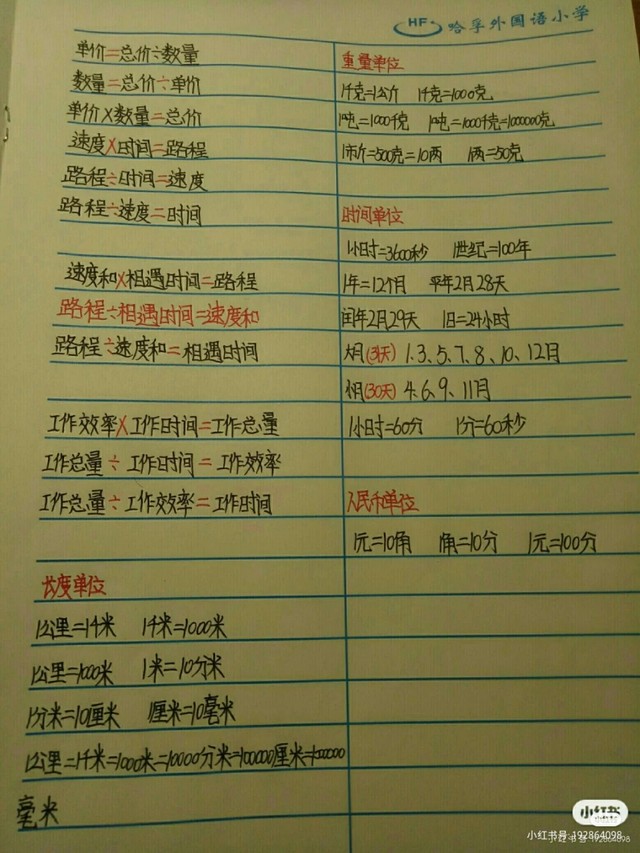 HF 哈孚外国语小学
单价=总价÷数量
数量=总价÷单价
单价×数量=总价
速度×时间=路程
路程÷时间=速度
路程÷速度=时间
速度和×相遇时间=路程
路程÷相遇时间=速度和
路程÷速度和=相遇时间
工作效率×工作时间=工作总量
工作总量÷工作时间=工作效率
工作总量÷工作效率=工作时间
长度单位
1公里=1千米 1千米=1000米
1公里=1000米 1米=10分米
1分米=10厘米 1厘米=10毫米
1公里=1千米=1000米=10000分米=100000厘米=1000000
毫米
重量单位
1千克=1公斤 1千克=1000克
1吨=1000千克 1吨=1000千克=1000000克
1市斤=500克=10两 1两=50克
时间单位
1小时=3600秒 1世纪=100年
1年=12个月 平年2月28天
闰年2月29天 1日=24小时
大月(31天) 1、3、5、7、8、10、12月
小月(30天) 4、6、9、11月
1小时=60分 1分=60秒
人民币单位
1元=10角 1角=10分 1元=100分
小红书
小红书号:192864098